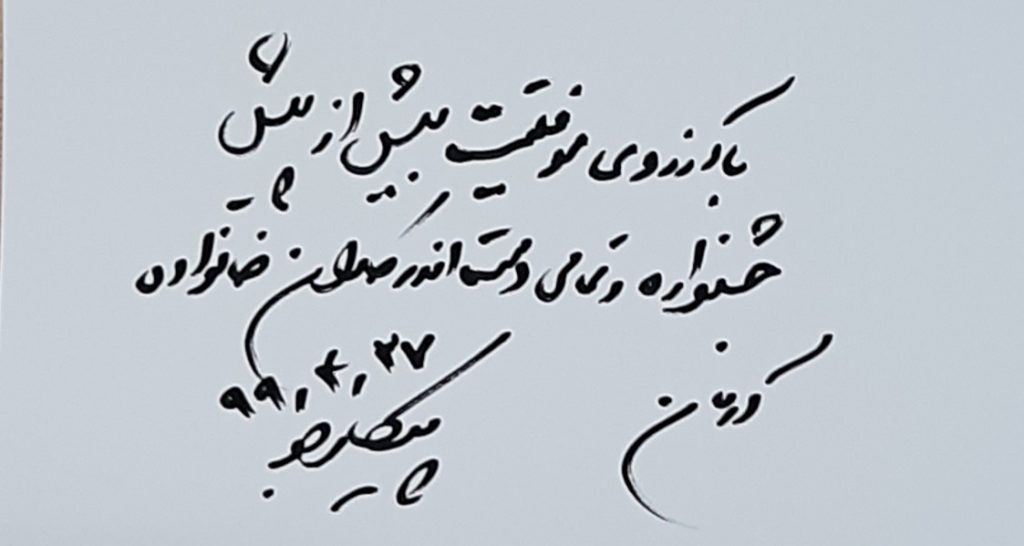 با آرزوی موفقیت بیش از پیش
جشنواره و تمامی دست اندرکاران خانواده
ورزش
۹۹,۴,۲۷